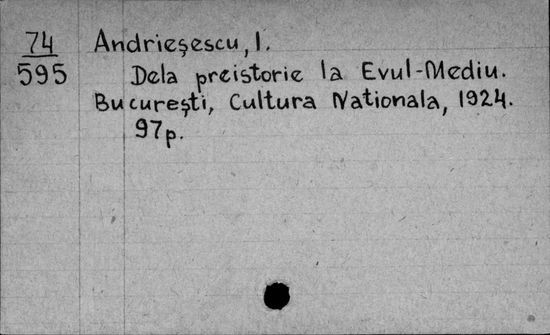 74 Andrieşescu, I.
595 Dela preistorie la Evul-Mediu.
Bucureşti, Cultura Nationala, 1924.
97p.